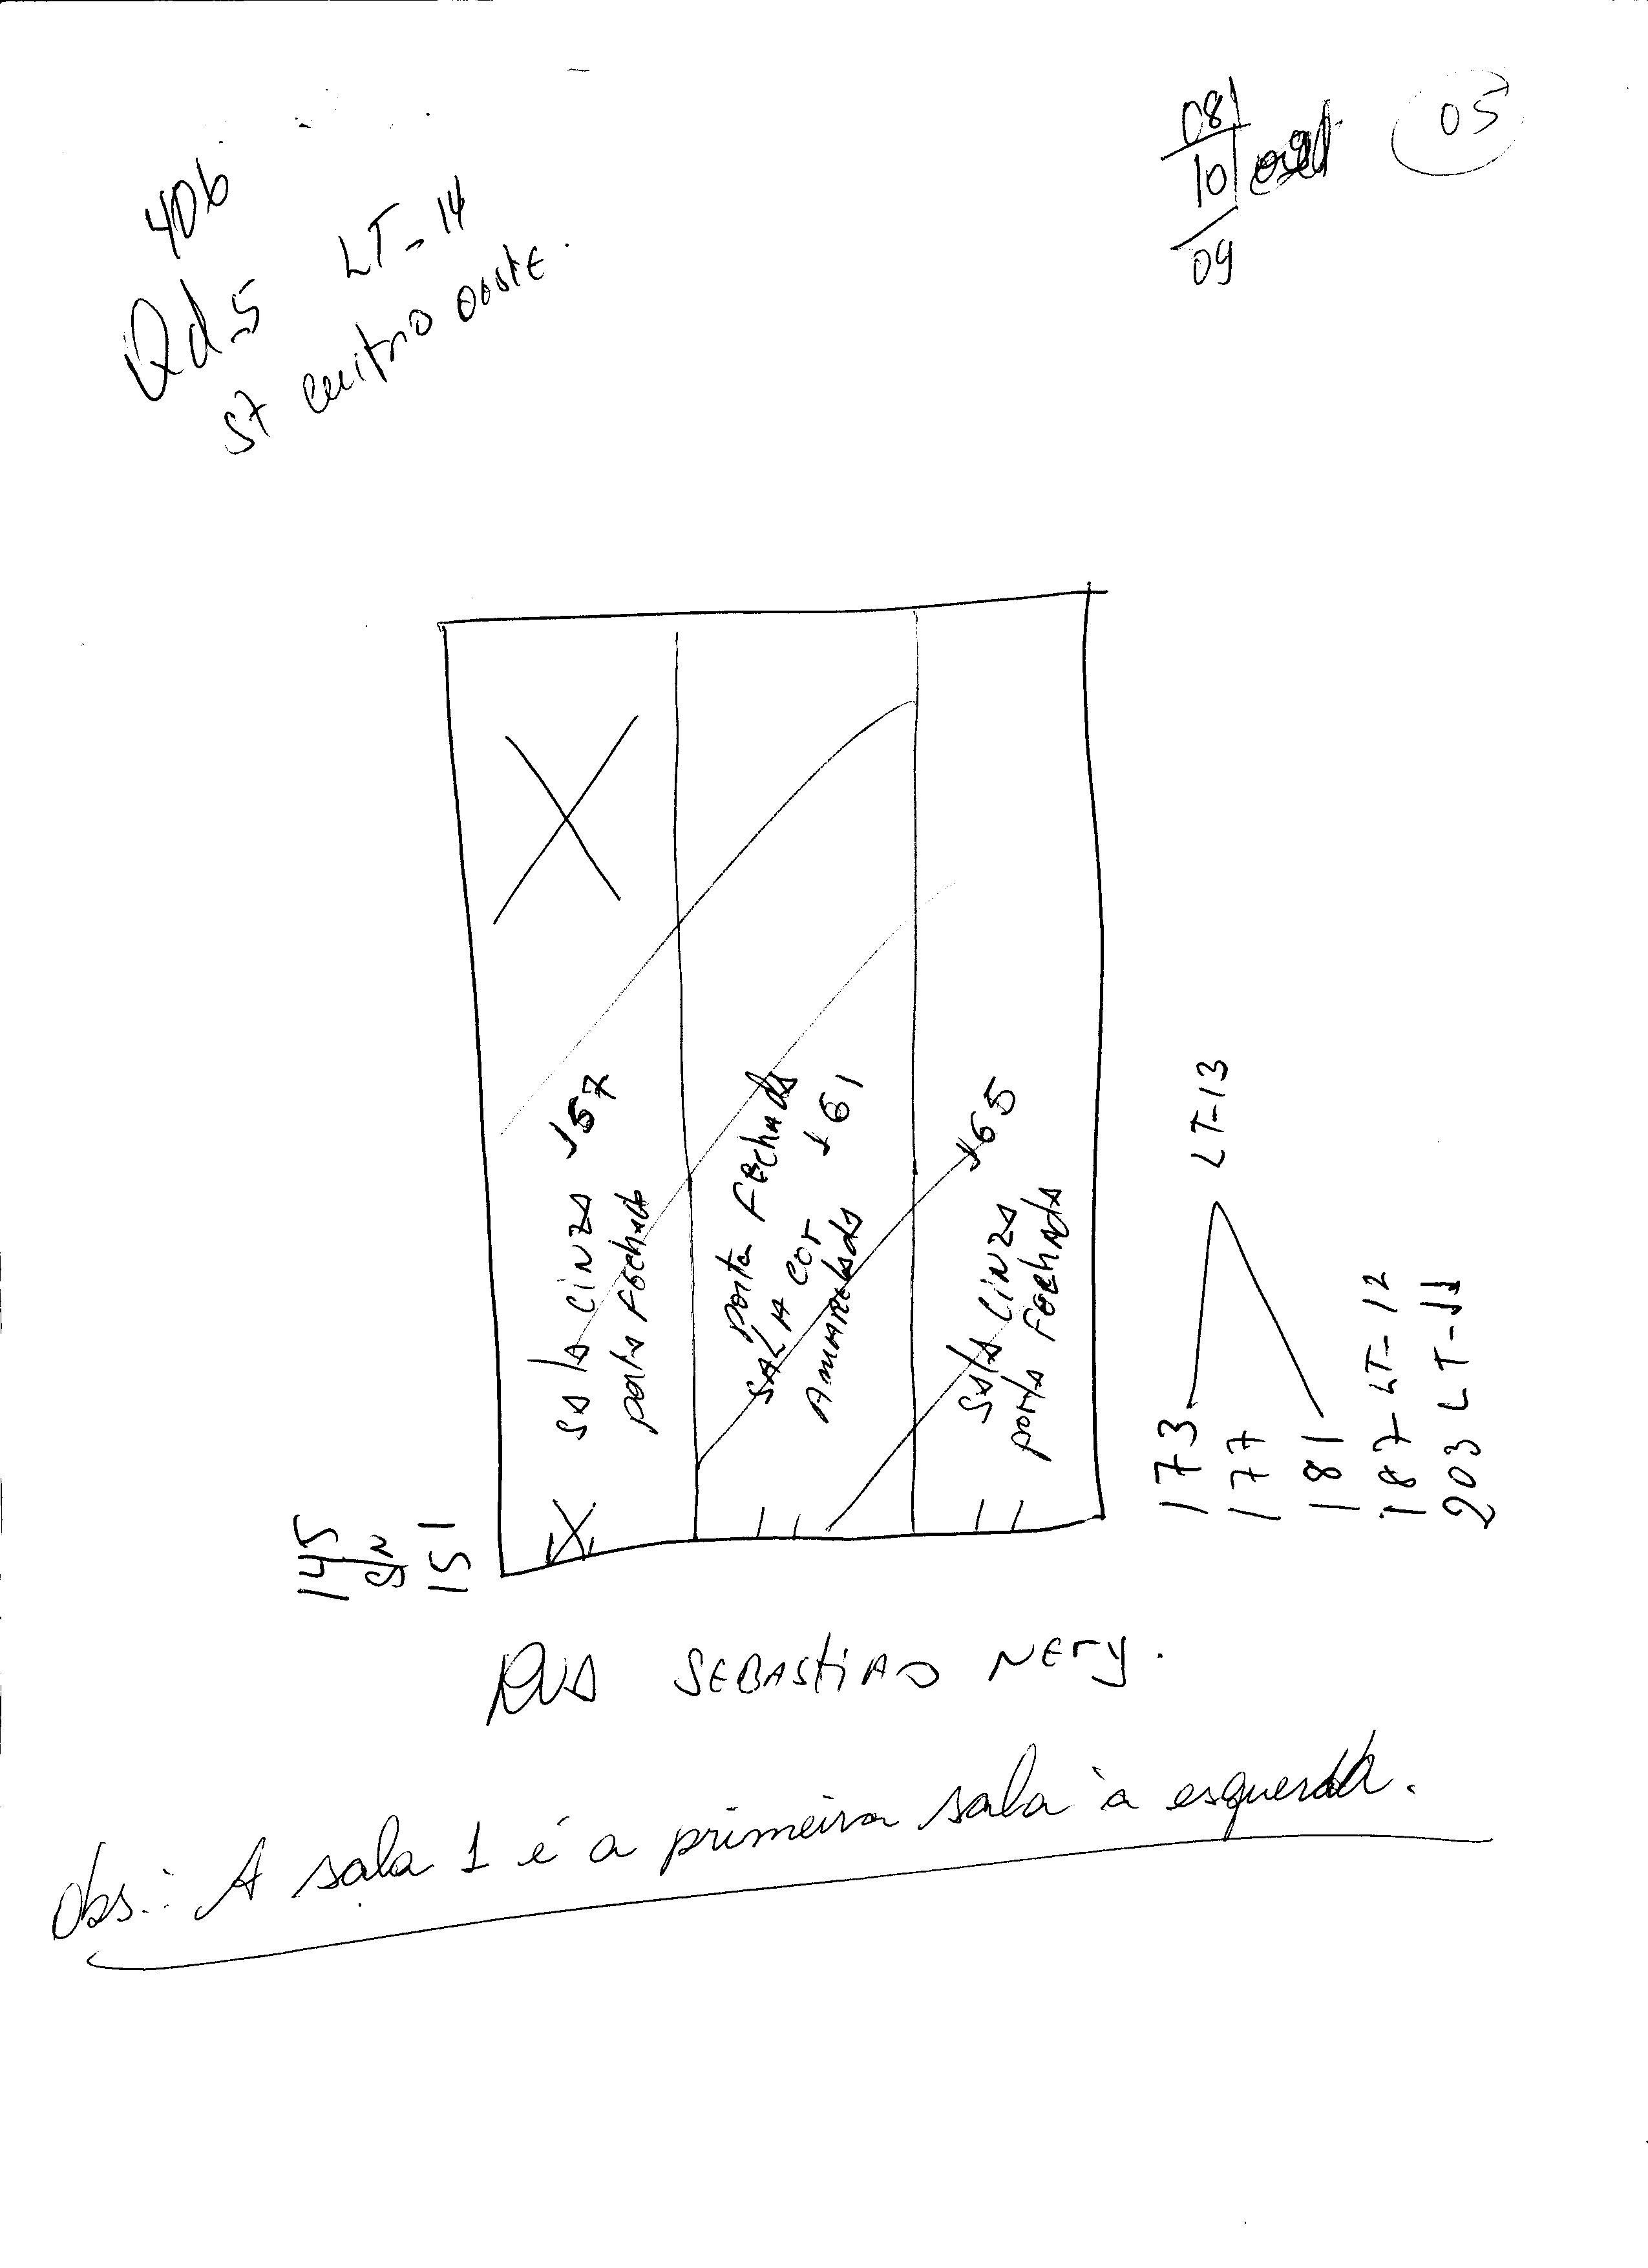 406
Qd-5 LT-14
ST centro oeste.
08
10
09
05
Sala Cinza 157
porta Fechada
porta Fechada
SALA COr
AmAReladа 161
Sala Cinza 165
porta Fechada
145
S/N
151
173
177
181
LT-13
187-LT-12
203 LT-11
RUA SEBASTIAO NEry.
Obs.: A sala 1 é a primeira sala à esquerda.